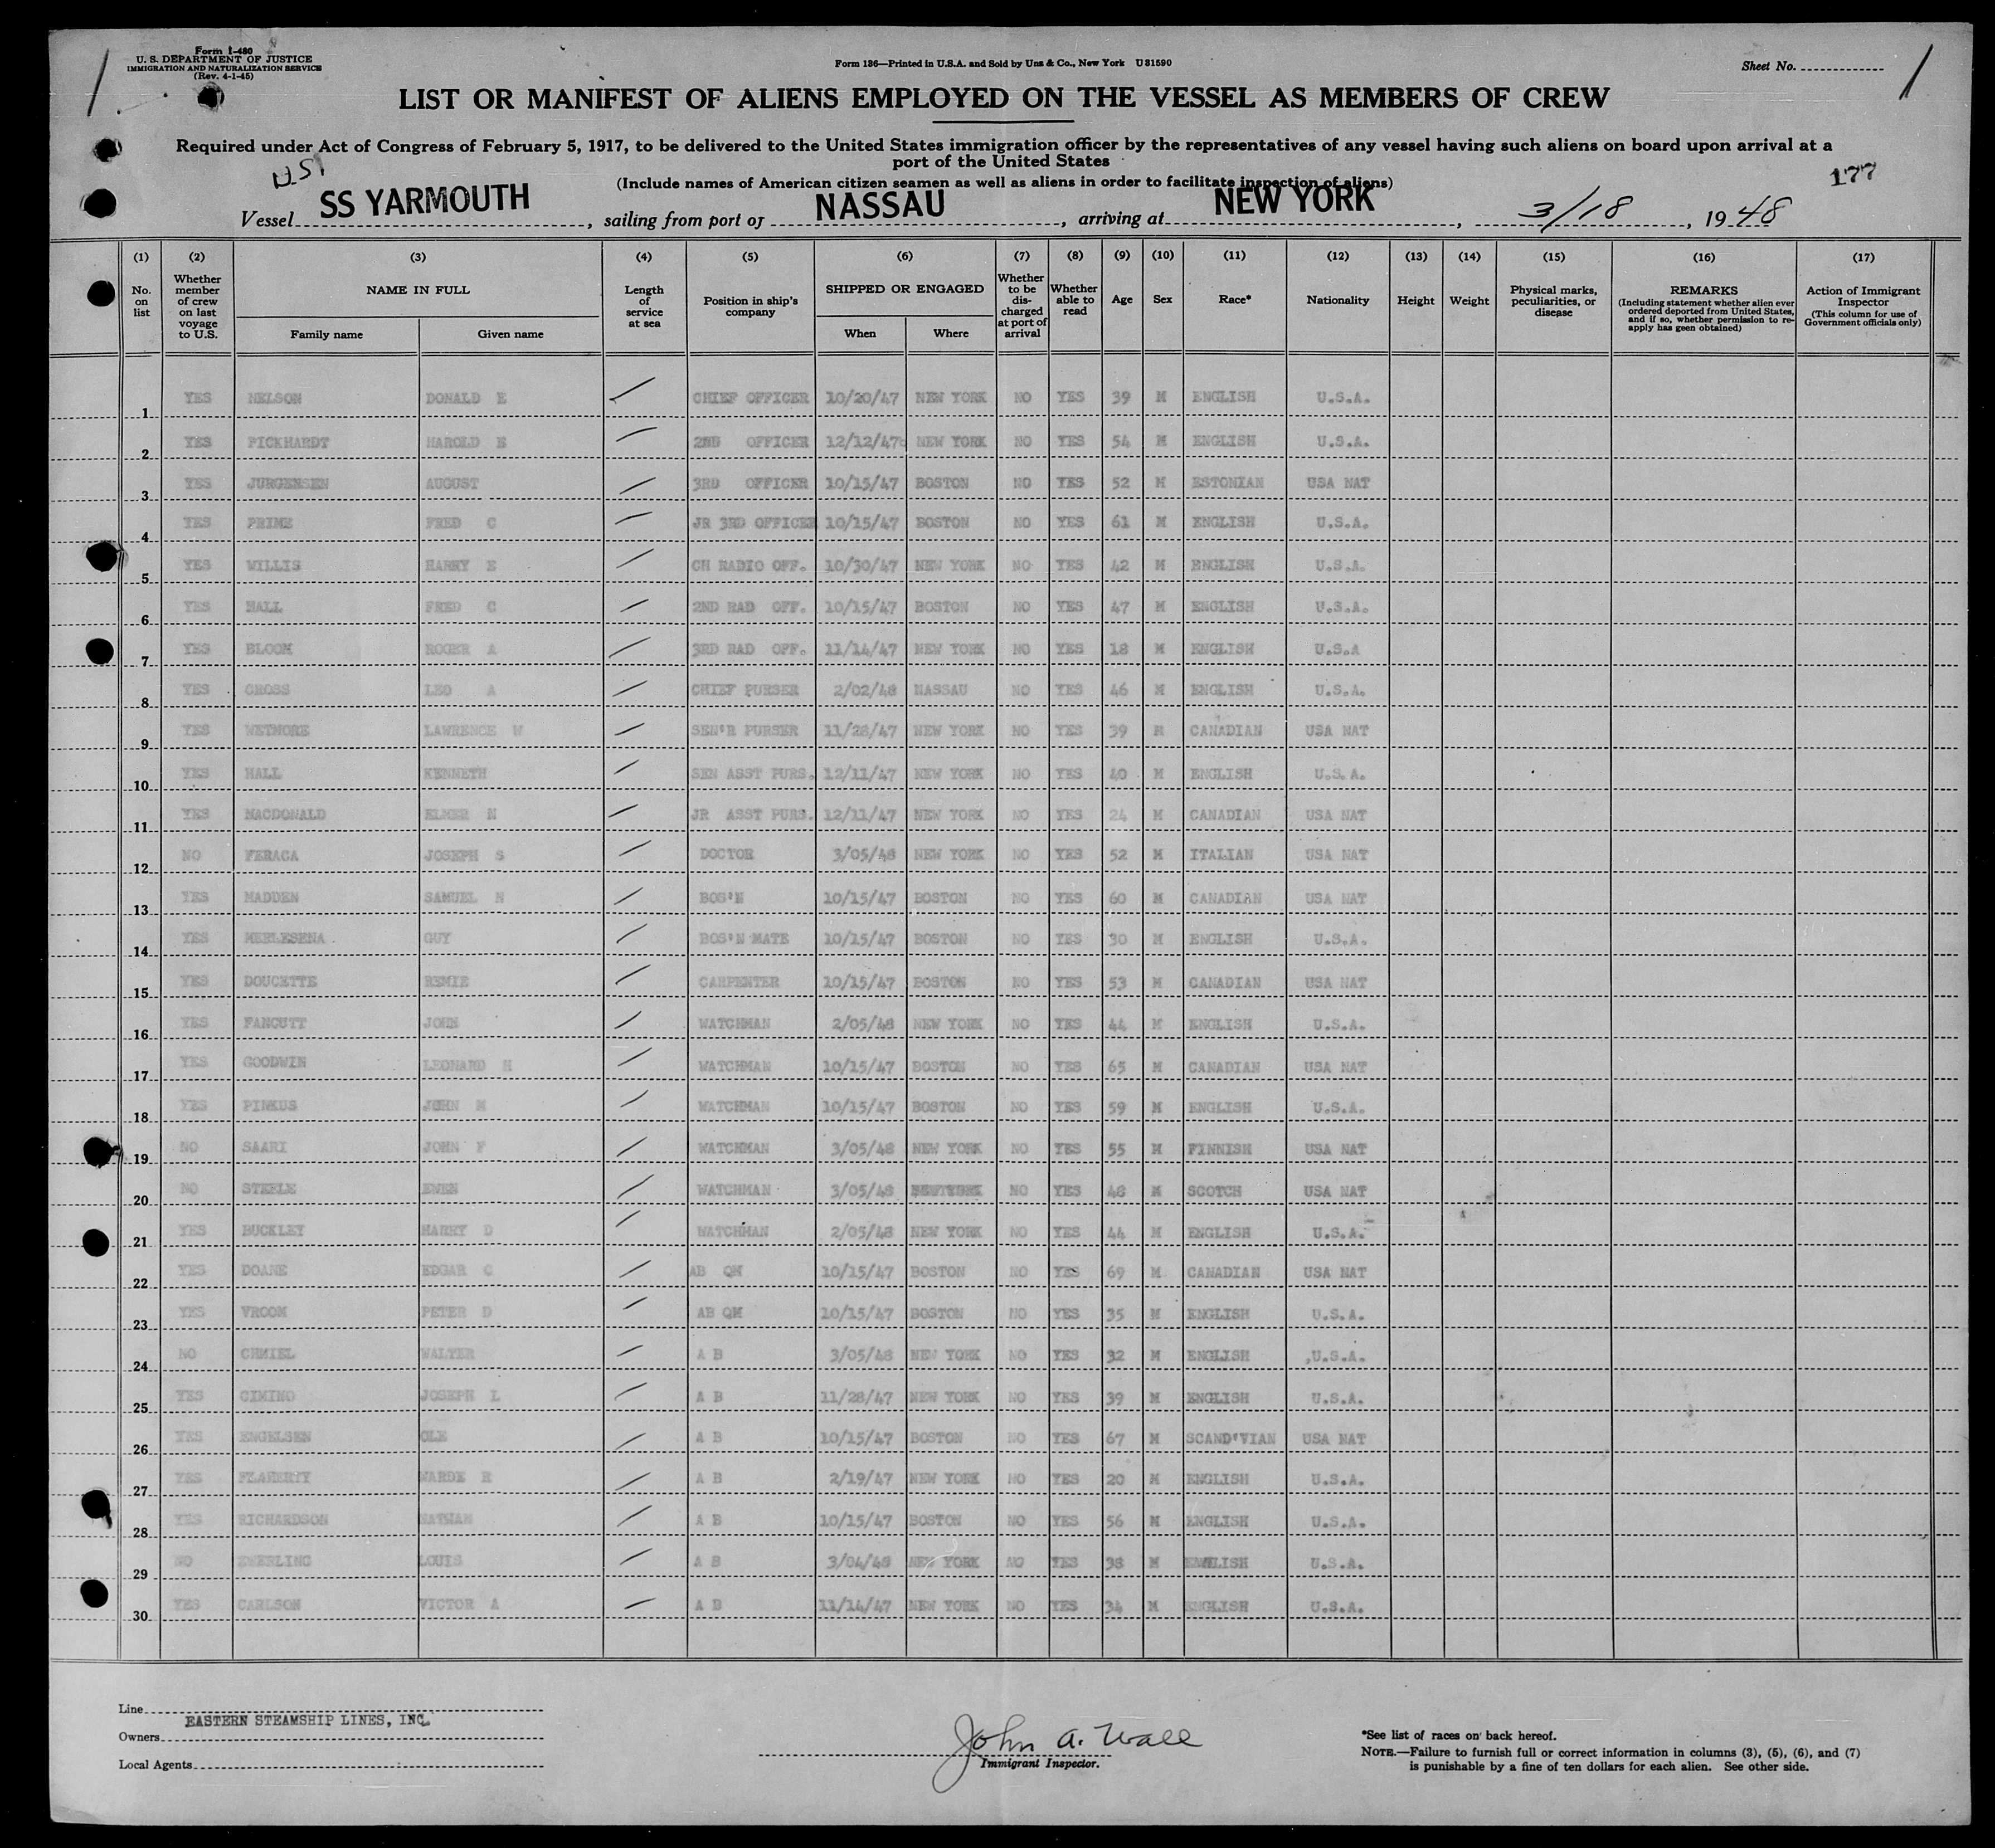 Form I-480
U. S. DEPARTMENT OF JUSTICE
IMMIGRATION AND NATURALIZATION SERVICE
(Rev. 4-1-45)
Form 136—Printed in U.S.A. and Sold by Unz & Co., New York U31590
Sheet No.
1
1
LIST OR MANIFEST OF ALIENS EMPLOYED ON THE VESSEL AS MEMBERS OF CREW
Required under Act of Congress of February 5, 1917, to be delivered to the United States immigration officer by the representatives of any vessel having such aliens on board upon arrival at a
port of the United States
(Include names of American citizen seamen as well as aliens in order to facilitate inspection of aliens)
177
Vessel SS YARMOUTH, sailing from port of NASSAU, arriving at NEW YORK, 3/18, 1948
(1) (2) (3) (4) (5) (6) (7) (8) (9) (10) (11) (12) (13) (14) (15) (16) (17)
No. on list
Whether member of crew on last voyage to U.S.
NAME IN FULL
Family name
Given name
Length of service at sea
Position in ship's company
SHIPPED OR ENGAGED
When
Where
Whether to be discharged at port of arrival
Whether able to read
Age
Sex
Race*
Nationality
Height
Weight
Physical marks, peculiarities, or disease
REMARKS
(Including statement whether alien ever ordered deported from United States, and if so, whether permission to re-apply has geen obtained)
Action of Immigrant Inspector
(This column for use of Government officials only)
1 YES NELSON DONALD E CHIEF OFFICER 10/20/47 NEW YORK NO YES 39 M ENGLISH U.S.A.
2 YES PICKHARDT HAROLD E 2ND OFFICER 12/12/47 NEW YORK NO YES 54 M ENGLISH U.S.A.
3 YES JURGENSEN AUGUST 3RD OFFICER 10/15/47 BOSTON NO YES 52 M ESTONIAN USA NAT
4 YES PRIME FRED C JR 3RD OFFICER 10/15/47 BOSTON NO YES 61 M ENGLISH U.S.A.
5 YES WILLIS HARRY E CH RADIO OFF. 10/30/47 NEW YORK NO YES 42 M ENGLISH U.S.A.
6 YES HALL FRED C 2ND RAD OFF. 10/15/47 BOSTON NO YES 47 M ENGLISH U.S.A.
7 YES BLOOM ROGER A 3RD RAD OFF. 11/14/47 NEW YORK NO YES 18 M ENGLISH U.S.A
8 YES GROSS LEO A CHIEF PURSER 2/02/48 NASSAU NO YES 46 M ENGLISH U.S.A.
9 YES WETMORE LAWRENCE W SEN'R PURSER 11/28/47 NEW YORK NO YES 39 M CANADIAN USA NAT
10 YES HALL KENNETH SEN ASST PURS. 12/11/47 NEW YORK NO YES 40 M ENGLISH U.S.A.
11 YES MACDONALD ELMER N JR ASST PURS. 12/11/47 NEW YORK NO YES 24 M CANADIAN USA NAT
12 NO FERACA JOSEPH S DOCTOR 3/05/48 NEW YORK NO YES 52 M ITALIAN USA NAT
13 YES MADDEN SAMUEL N BOS'N 10/15/47 BOSTON NO YES 60 M CANADIAN USA NAT
14 YES MERLESENA GUY BOS'N MATE 10/15/47 BOSTON NO YES 30 M ENGLISH U.S.A.
15 YES DOUCETTE REMIE CARPENTER 10/15/47 BOSTON NO YES 53 M CANADIAN USA NAT
16 YES FANCUTT JOHN WATCHMAN 2/05/48 NEW YORK NO YES 44 M ENGLISH U.S.A.
17 YES GOODWIN LEONARD H WATCHMAN 10/15/47 BOSTON NO YES 65 M CANADIAN USA NAT
18 YES PINKUS JOHN M WATCHMAN 10/15/47 BOSTON NO YES 59 M ENGLISH U.S.A.
19 NO SAARI JOHN F WATCHMAN 3/05/48 NEW YORK NO YES 55 M FINNISH USA NAT
20 NO STEELE EWEN WATCHMAN 3/05/48 NEW YORK NO YES 48 M SCOTCH USA NAT
21 YES BUCKLEY HARRY D WATCHMAN 2/05/48 NEW YORK NO YES 44 M ENGLISH U.S.A.
22 YES DOANE EDGAR C AB QM 10/15/47 BOSTON NO YES 69 M CANADIAN USA NAT
23 YES VROOM PETER D AB QM 10/15/47 BOSTON NO YES 35 M ENGLISH U.S.A.
24 NO CHMIEL WALTER A B 3/05/48 NEW YORK NO YES 32 M ENGLISH U.S.A.
25 YES CIMINO JOSEPH L A B 11/28/47 NEW YORK NO YES 39 M ENGLISH U.S.A.
26 YES ENGELSEN OLE A B 10/15/47 BOSTON NO YES 67 M SCAND'VIAN USA NAT
27 YES FLAHERTY WARDE R A B 2/19/47 NEW YORK NO YES 20 M ENGLISH U.S.A.
28 YES RICHARDSON NATHAN A B 10/15/47 BOSTON NO YES 56 M ENGLISH U.S.A.
29 NO LOUIS A B 3/04/48 NEW YORK NO YES 38 M ENGLISH U.S.A.
30 YES CARLSON VICTOR A A B 11/14/47 NEW YORK NO YES 34 M ENGLISH U.S.A.
Line
EASTERN STEAMSHIP LINES, INC.
Owners
Local Agents
John A. Wall
Immigrant Inspector.
*See list of races on back hereof.
NOTE.—Failure to furnish full or correct information in columns (3), (5), (6), and (7)
is punishable by a fine of ten dollars for each alien. See other side.